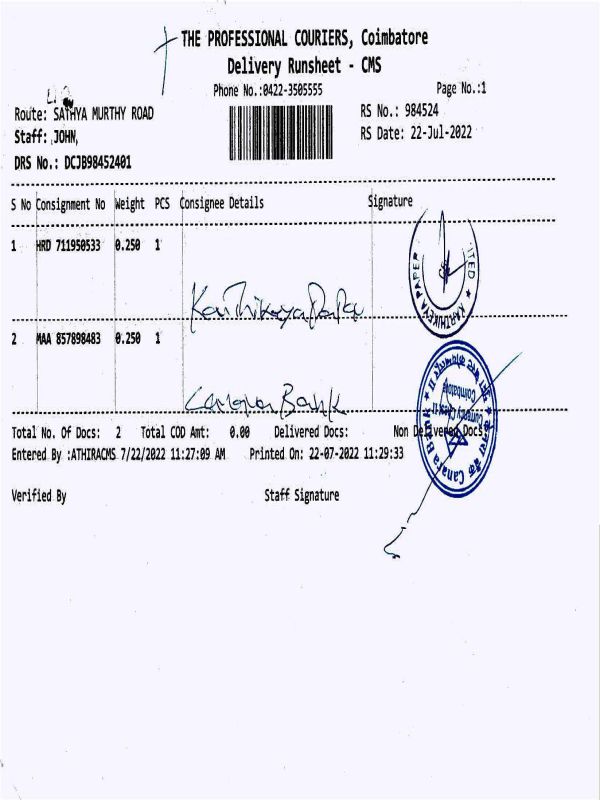 THE PROFESSIONAL COURIERS, Coimbatore
Delivery Runsheet - CMS
Phone No.:0422-3505555 Page No.:1
Route: SATHYA MURTHY ROAD RS No.: 984524
Staff: JOHN, RS Date: 22-Jul-2022
DRS No.: DCJB98452401
S No Consignment No Weight PCS Consignee Details Signature
1 HRD 711950533 0.250 1
Karthikeya Paper
KARTHIKEYA PAPER ITED
2 MAA 857898483 0.250 1
Canara Bank
Canara Bank केनरा बैंक Currency Chest II Coimbatore
Total No. Of Docs: 2 Total COD Amt: 0.00 Delivered Docs: Non Delivered Docs:
Entered By :ATHIRACMS 7/22/2022 11:27:09 AM Printed On: 22-07-2022 11:29:33
Verified By Staff Signature